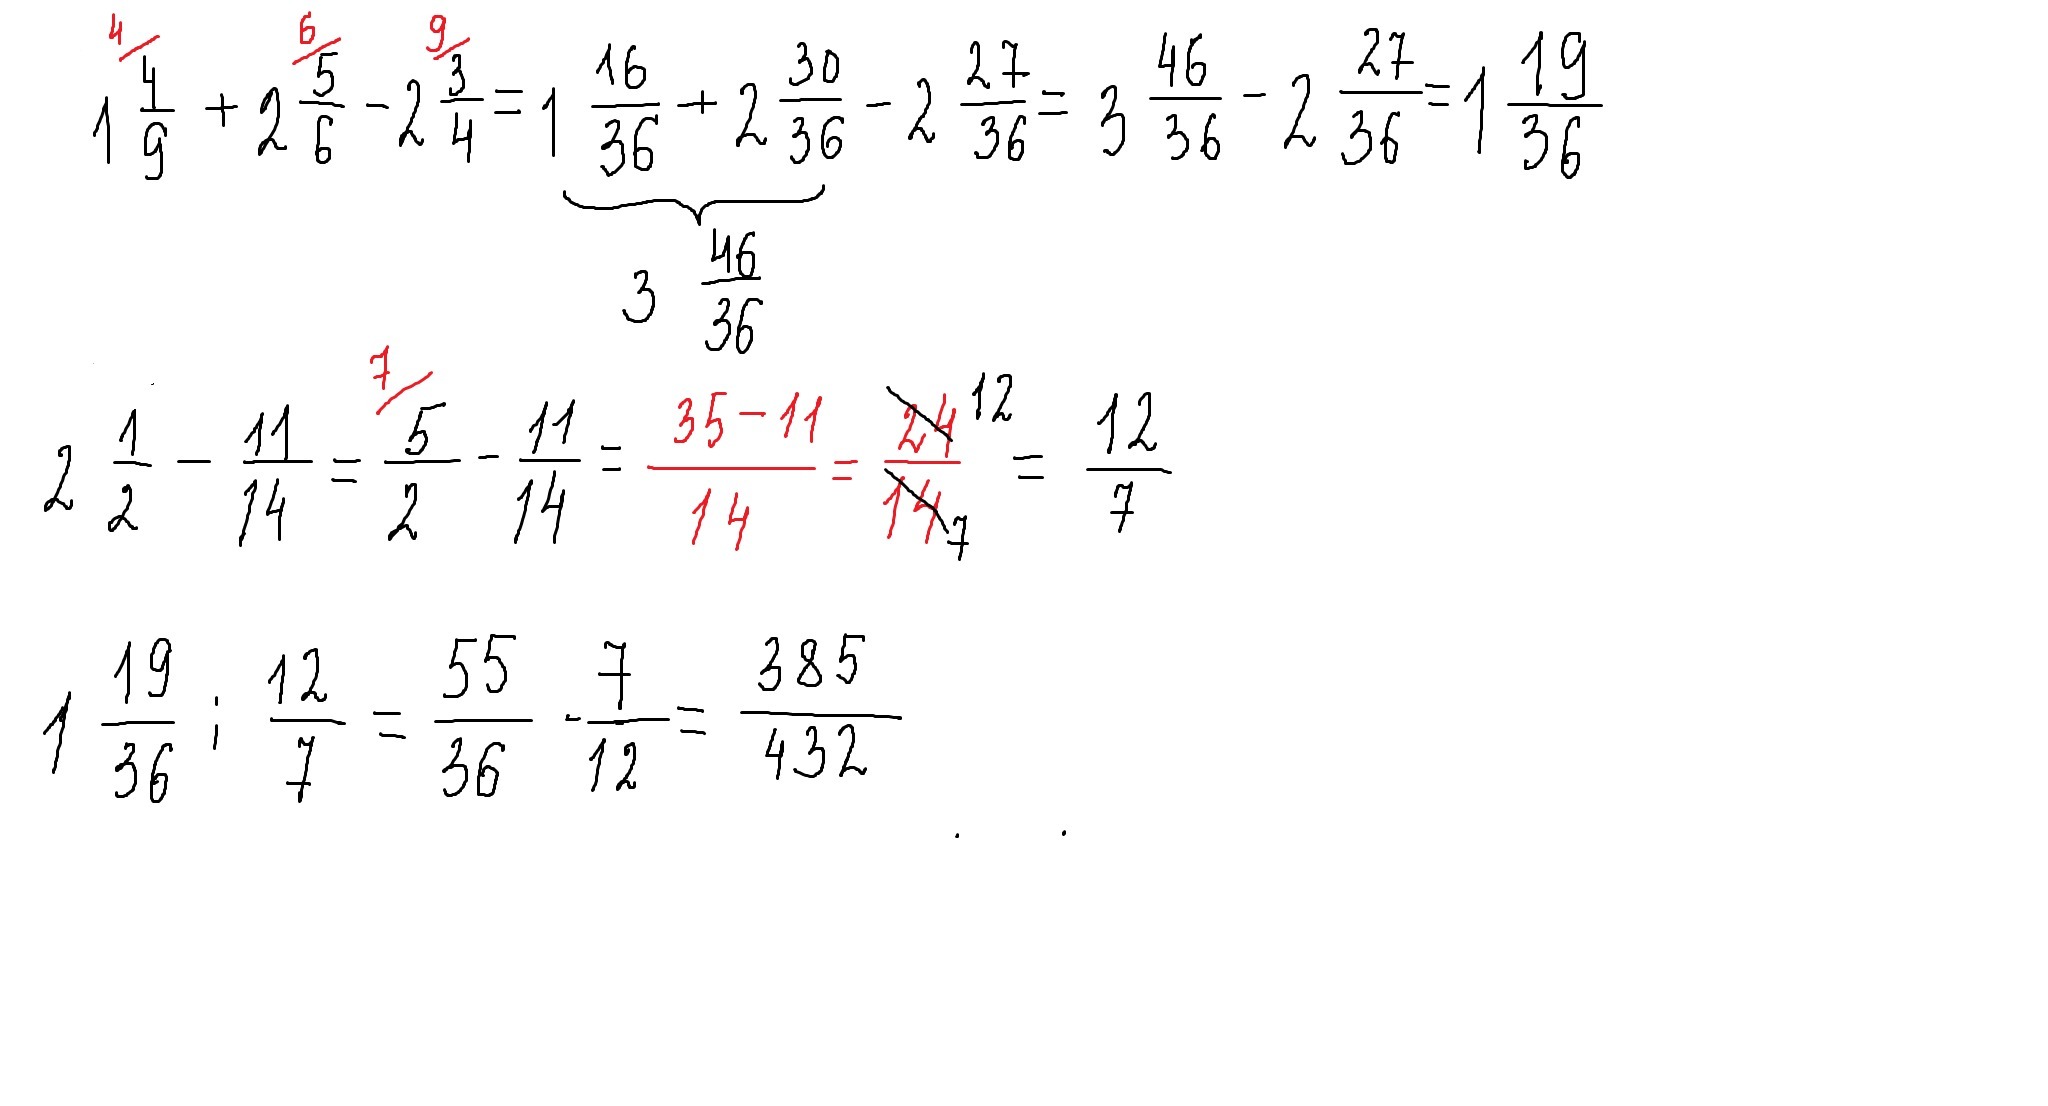 1 4/9 + 2 5/6 - 2 3/4 = 1 16/36 + 2 30/36 - 2 27/36 = 3 46/36 - 2 27/36 = 1 19/36
4 6 9
3 46/36
2 1/2 - 11/14 = 5/2 - 11/14 = 35-11/14 = 24/14 = 12/7
7 12 7
1 19/36 : 12/7 = 55/36 - 7/12 = 385/432